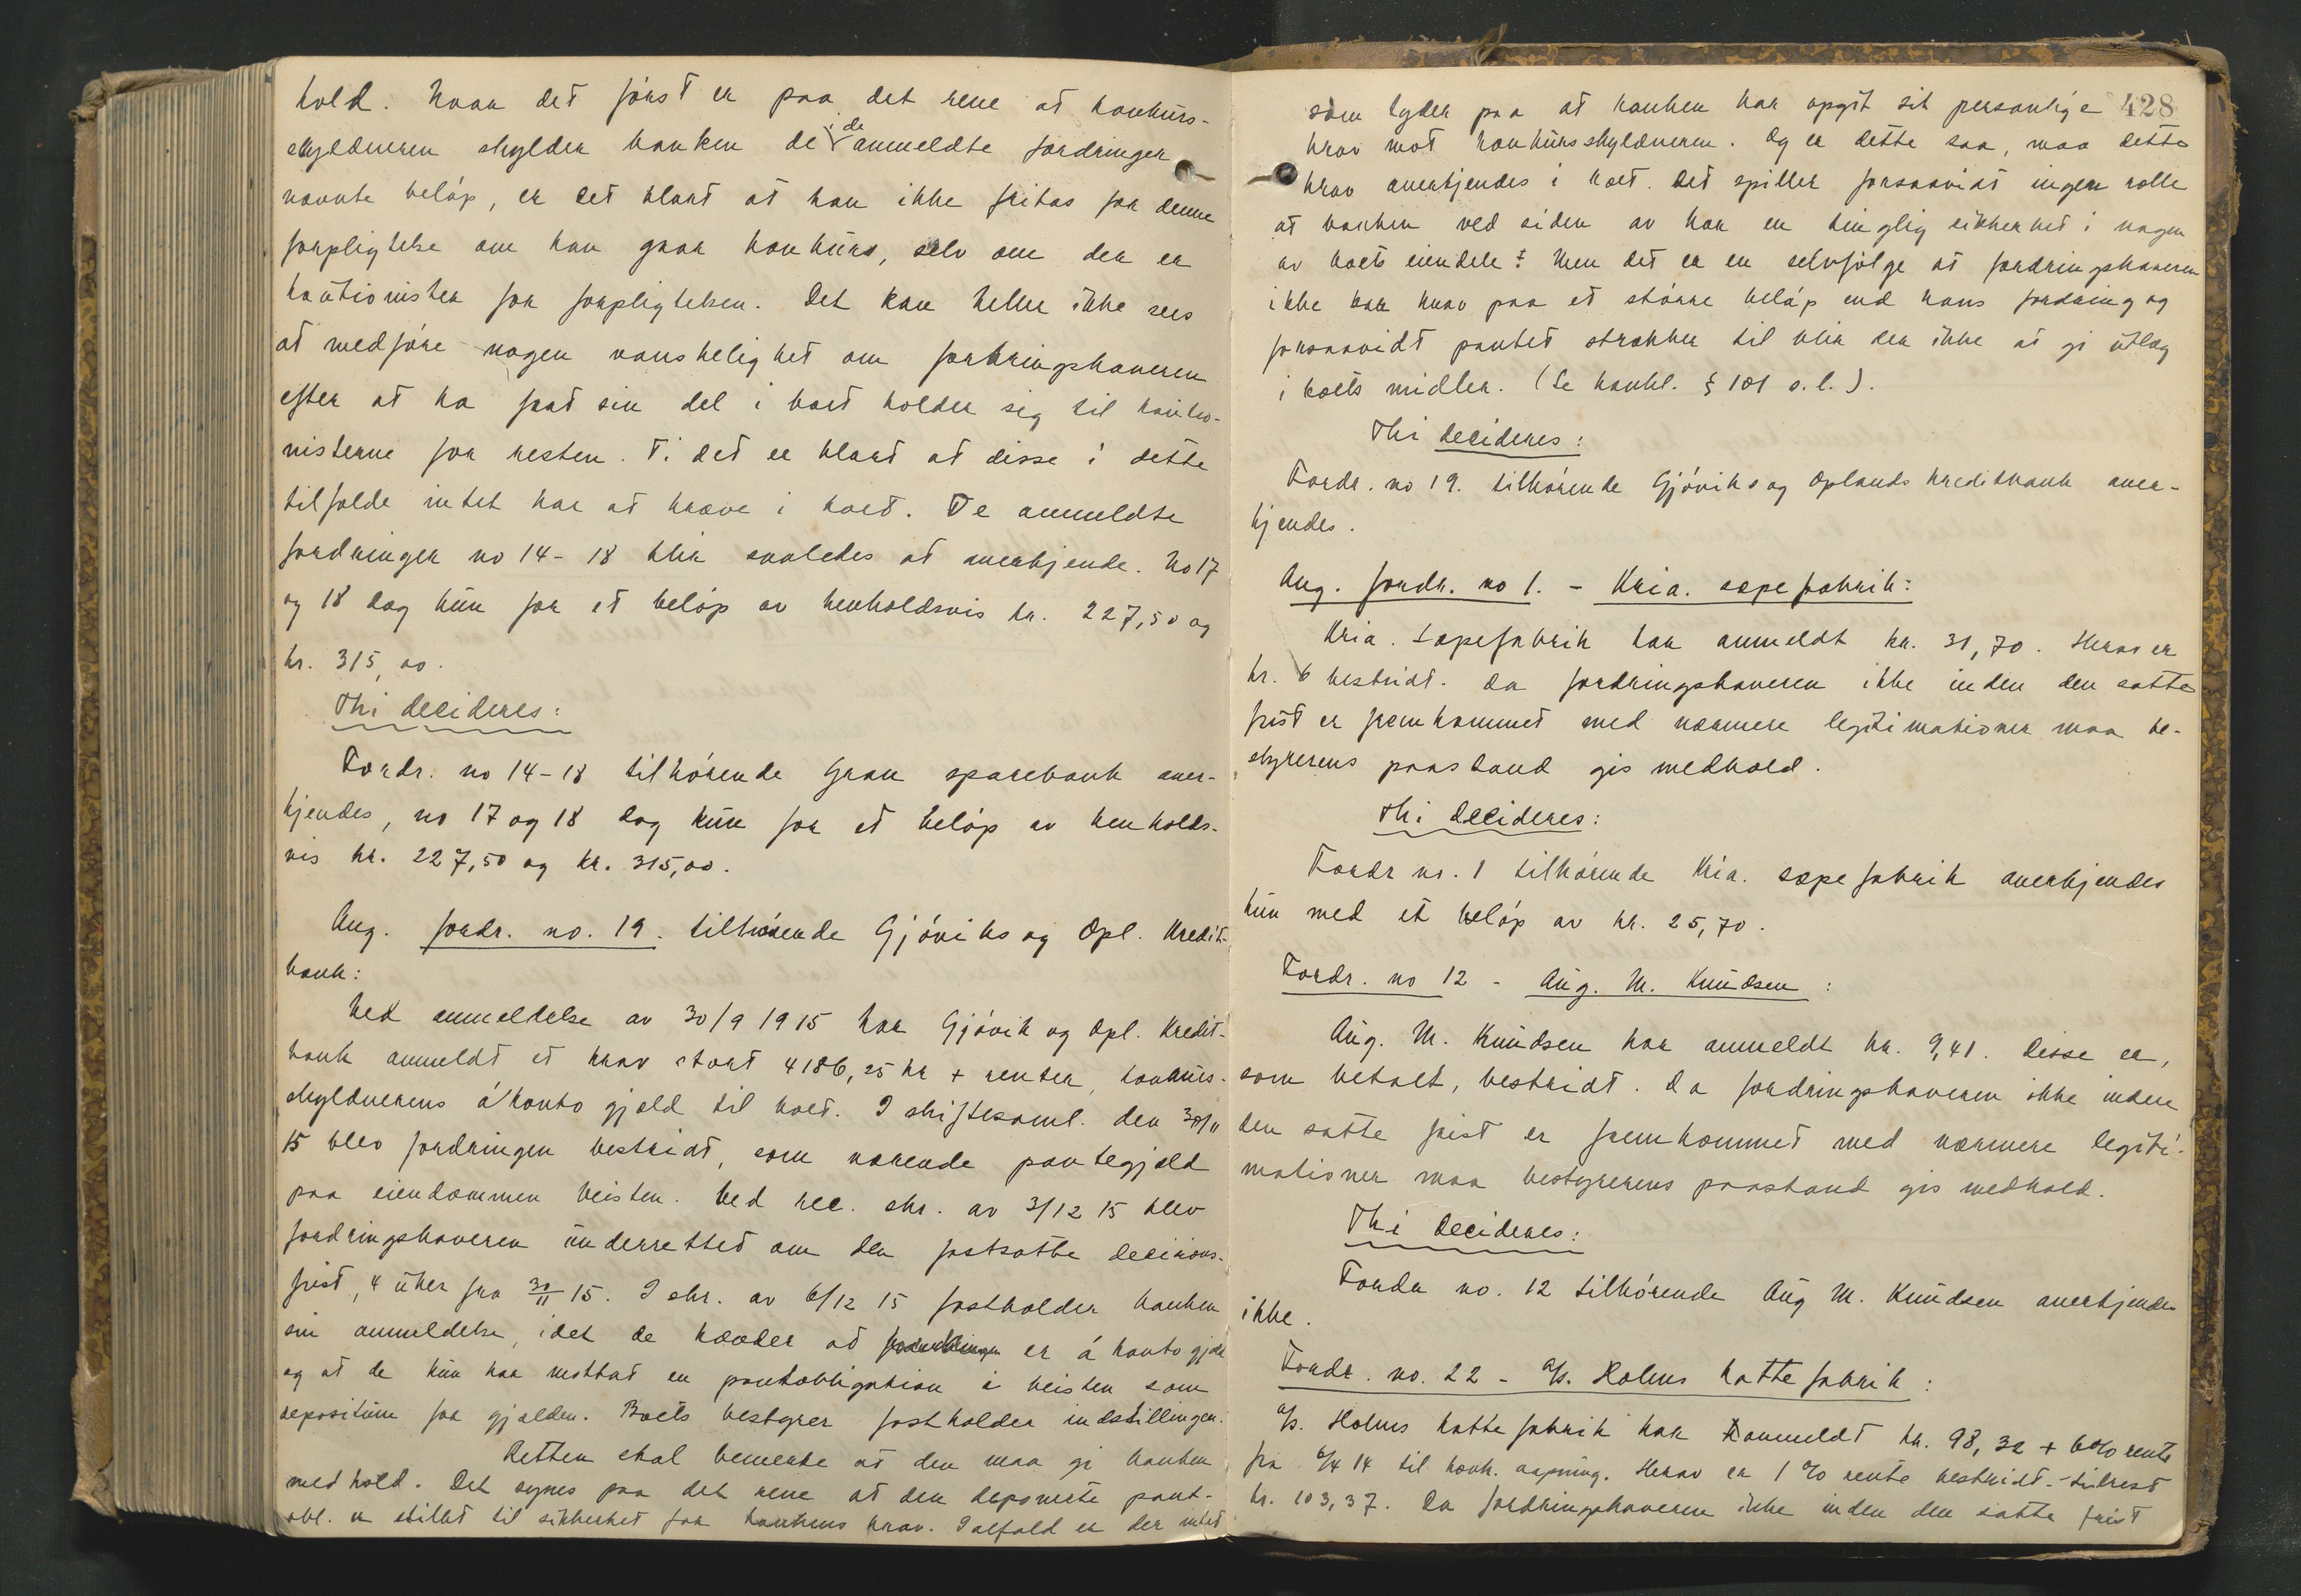 hold. Naar det først er paa det rene at konkurs-
skyldneren skylder banken de i de anmeldte fordringer
nævnte beløp, er det klart at han ikke fritas for denne
forpligtelse om han gaar konkurs, selv om der er
kautionister for forpligtelsen. Det kan heller ikke sees
at medføre nogen vanskelighet om fordringshaveren
efter at ha faat sin del i boet holder sig til kautio-
nisterne for resten. Ti det er klart at disse i dette
tilfælde intet har at kræve i boet. De anmeldte
fordringer no 14-18 blir saaledes at anerkjende. No 17
og 18 dog kun for et beløp av henholdsvis kr. 227,50 og
kr. 315,00.
Thi decideres:
Fordr. no 14-18 tilhørende Gran sparebank aner-
kjendes, no 17 og 18 dog kun for et beløp av henholds-
vis kr. 227,50 og kr. 315,00.
Ang. fordr. no. 19. tilhørende Gjøviks og Opl. Kredit-
bank:
Ved anmeldelse av 30/9 1915 har Gjøvik og Opl. Kredit-
bank anmeldt et krav stort 4186,25 kr + renter, konkurs-
skyldnerens á konto gjæld til boet. I skiftesaml. den 30/11
15 blev fordringen bestridt, som værende pantegjæld
paa eiendommen Veisten. Ved rec. skr. av 3/12 15 blev
fordringshaveren underrettet om den fastsatte decisions-
frist, 4 uker fra 30/11 15. I skr. av 6/12 15 fastholder banken
sin anmeldelse, idet de hævder at fordringen er á konto gjæld
og at de kun har mottat en pantobligation i Veisten som
depositum for gjælden. Boets bestyrer fastholder indstillingen.
Retten skal bemerke at den maa gi banken
medhold. Det synes paa det rene at den deponerte pant-
obl. er stillet til sikkerhet for bankens krav. Ialfald er der intet
428
som tyder paa at banken har opgit sit personlige
krav mot konkursskyldneren. Og er dette saa, maa dette
krav anerkjendes i boet. Det spiller forsaavidt ingen rolle
at banken ved siden av har en tinglig sikkerhet i nogen
av boets eiendele. Men det er en selvfølge at fordringshaveren
ikke har krav paa et større beløp end hans fordring og
forsaavidt pantet strækker til blir der ikke at gi utlæg
i boets midler. (Se konkl. § 101 s. l.).
Thi decideres:
Fordr. no 19. tilhørende Gjøviks og Oplands kreditbank aner-
kjendes.
Ang. fordr. no 1. - Kria. sæpefabrik:
Kria. Sæpefabrik har anmeldt kr. 31,70. Herav er
kr. 6 bestridt. Da fordringshaveren ikke inden den satte
frist er fremkommet med nærmere legitimationer maa be-
styrerens paastand gis medhold.
Thi decideres:
Fordr no. 1 tilhørende Kria. sæpefabrik anerkjendes
kun med et beløp av kr. 25,70.
Fordr. no 12 - Aug. M. Knudsen :
Aug. M. Knudsen har anmeldt kr. 9,41. Disse er,
som betalt, bestridt. Da fordringshaveren ikke inden
den satte frist er fremkommet med nærmere legiti-
mationer maa bestyrerens paastand gis medhold.
Thi decideres:
Fordr no. 12 tilhørende Aug M. Knudsen anerkjendes
ikke.
Fordr. no. 22 - A/s. Holms hattefabrik :
A/s. Holms hattefabrik har anmeldt kr. 98,32 + 6% rente
fra 6/4 14 til konk. aapning. Herav er 1 % rente bestridt. - tilrest
kr. 103,37. Da fordringshaveren ikke inden den satte frist